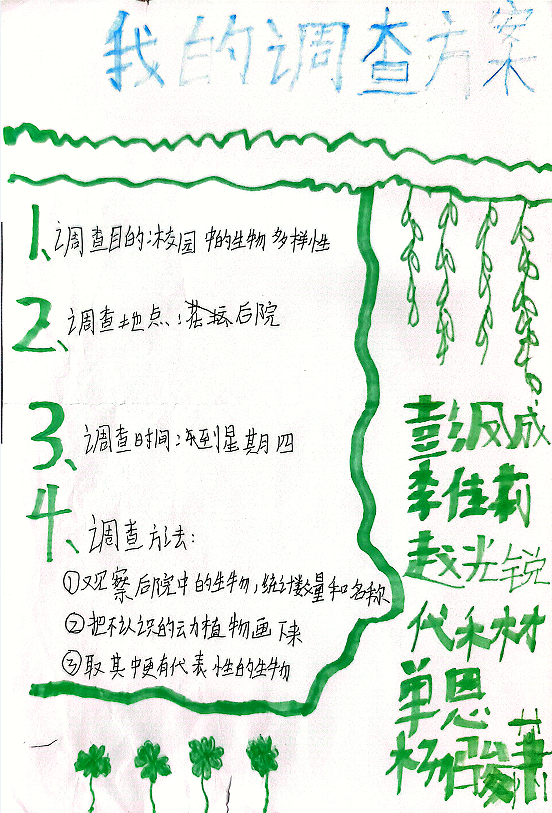 我的调查方案
1、调查目的:校园中的生物多样性
2、调查地点:后院
3、调查时间:星期四
4、调查方法:
①观察后院中的生物,统计数量和名称
②把不认识的动植物画下来
③取其中更有代表性的生物
彭飒成
李佳莉
赵光锐
代禾材
单恩
杨骏